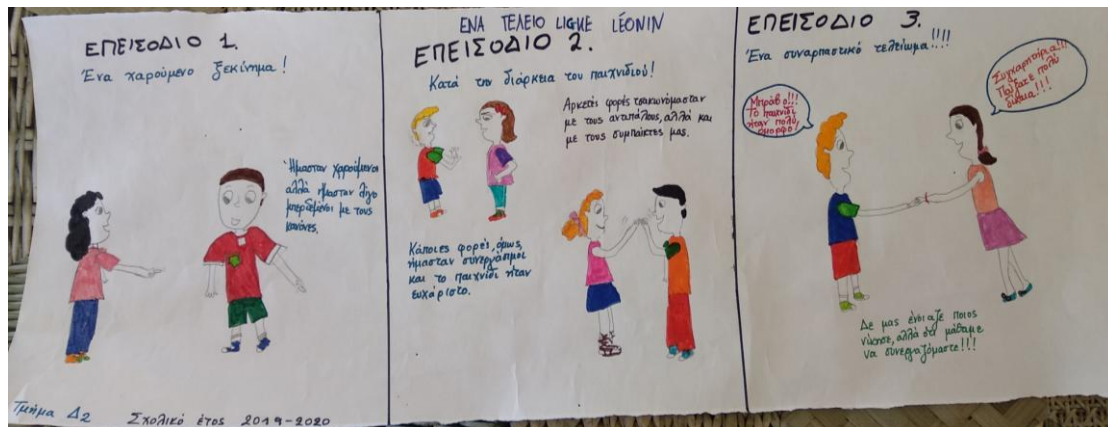 ΕΠΕΙΣΟΔΙΟ 1.
Ένα χαρούμενο ξεκίνημα!
Ήμασταν χαρούμενοι
αλλά ήμασταν λίγο
μπερδεμένοι με τους
κανόνες.
Τμήμα Δ2
Σχολικό έτος 2019-2020
ΕΝΑ ΤΕΛΕΙΟ LIGUE LÉONIN
ΕΠΕΙΣΟΔΙΟ 2.
Κατά την διάρκεια του παιχνιδιού!
Αρκετές φορές τσακωνόμασταν
με τους αντιπάλους, αλλά και
με τους συμπαίκτες μας.
Κάποιες φορές, όμως,
ήμασταν συνεργάσιμοι
και το παιχνίδι ήταν
ευχάριστο.
ΕΠΕΙΣΟΔΙΟ 3.
Ένα συναρπαστικό τελείωμα!!!!
Μπράβο!!!
Το παιχνίδι
ήταν πολύ
όμορφο!
Συγχαρητήρια!!!
Παίξατε πολύ
δίκαια!!!
Δε μας ένοιαζε ποιος
νίκησε, αλλά ότι μάθαμε
να συνεργαζόμαστε!!!